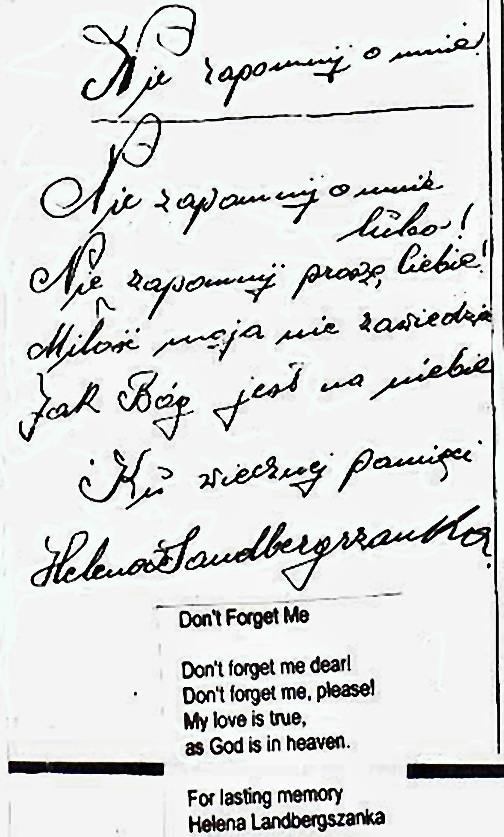 Nie zapomnij o mnie!
Nie zapomnij o mnie
luba!
Nie zapomnij proszę Ciebie!
Miłość moja nie zawiedzie
Jak Bóg jest na niebie
Ku wiecznej pamięci
Helena Landbergszanka
Don't Forget Me
Don't forget me dear!
Don't forget me, please!
My love is true,
as God is in heaven.
For lasting memory
Helena Landbergszanka